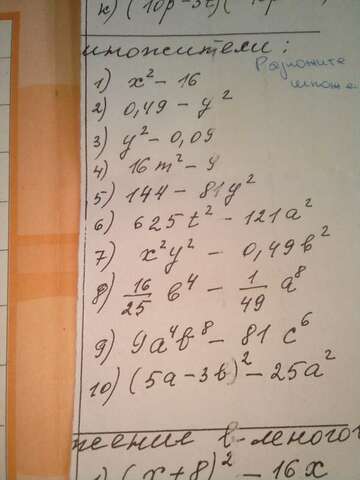 к) (10p - 3t)(
множители:
Разложите
множе
1) x² - 16
2) 0,49 - y²
3) y² - 0,09
4) 16m² - 9
5) 144 - 81y²
6) 625t² - 121a²
7) x²y² - 0,49b²
8) 16/25 b⁴ - 1/49 a⁸
9) 9a⁴b⁸ - 81c⁶
10) (5a - 3b)² - 25a²
жение в многоч
1) (x + 8)² - 16x